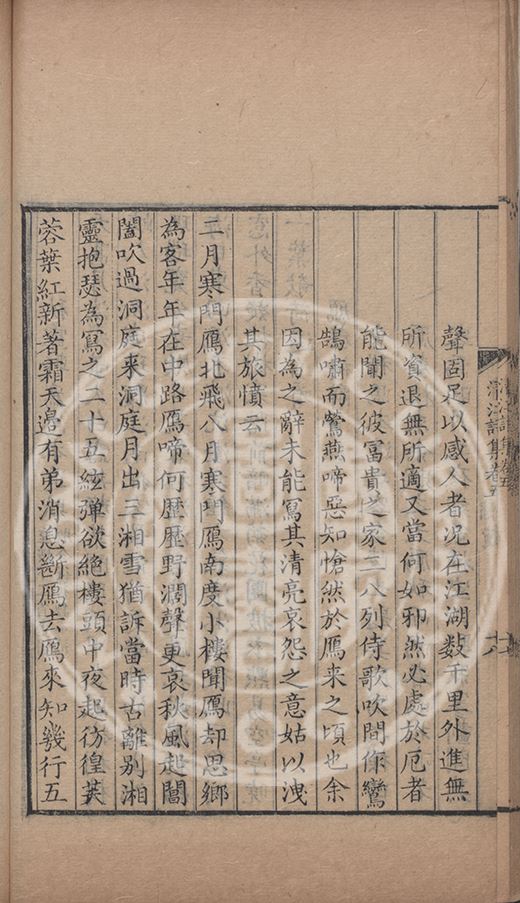 聲固足以感人者况在江湖數千里外進無
所資退無所適又當何如邪然必處於厄者
能聞之彼富貴之家二八列侍歌吹間作鸞
鵠嘯而鶯燕啼惡知愴然於鴈來之頃也余
因為之辭未能寫其清亮哀怨之意姑以洩
其旅憤云
二月寒門鴈北飛八月寒門鴈南度小樓聞鴈却思鄉
為客年年在中路鴈啼何歷歷野濶聲更哀秋風起閶
闔吹過洞庭來洞庭月出三湘雪猶訴當時古離别湘
靈抱瑟為寫之二十五絃彈欲絶樓頭中夜起彷徨芙
蓉葉紅新著霜天邊有弟消息斷鴈去鴈來知幾行五
清江詩集卷五
十六